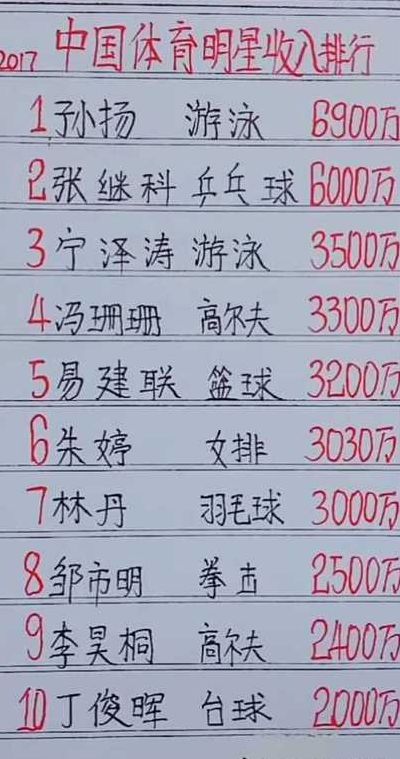 2017 中国体育明星收入排行
1 孙扬 游泳 6900万
2 张继科 乒乓球 6000万
3 宁泽涛 游泳 3500万
4 冯珊珊 高尔夫 3300万
5 易建联 篮球 3200万
6 朱婷 女排 3030万
7 林丹 羽毛球 3000万
8 邹市明 拳击 2500万
9 李昊桐 高尔夫 2400万
10 丁俊晖 台球 2000万